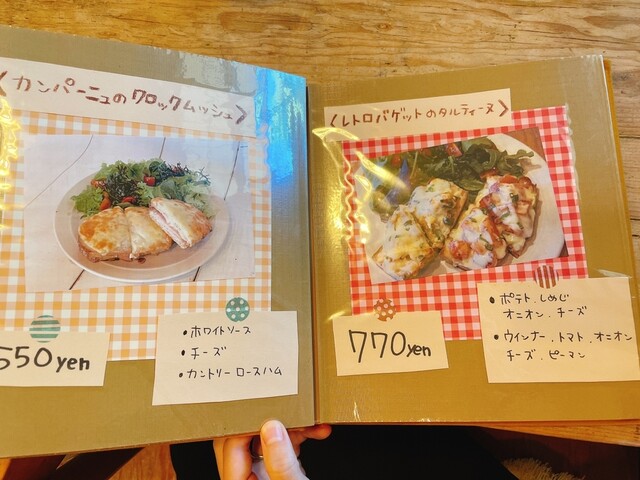 〈カンパーニュのクロックムッシュ〉
550yen
•ホワイトソース
•チーズ
•カントリーロースハム
〈レトロバゲットのタルティーヌ〉
770yen
•ポテト、しめじ
オニオン、チーズ
•ウインナー、トマト、オニオン
チーズ、ピーマン